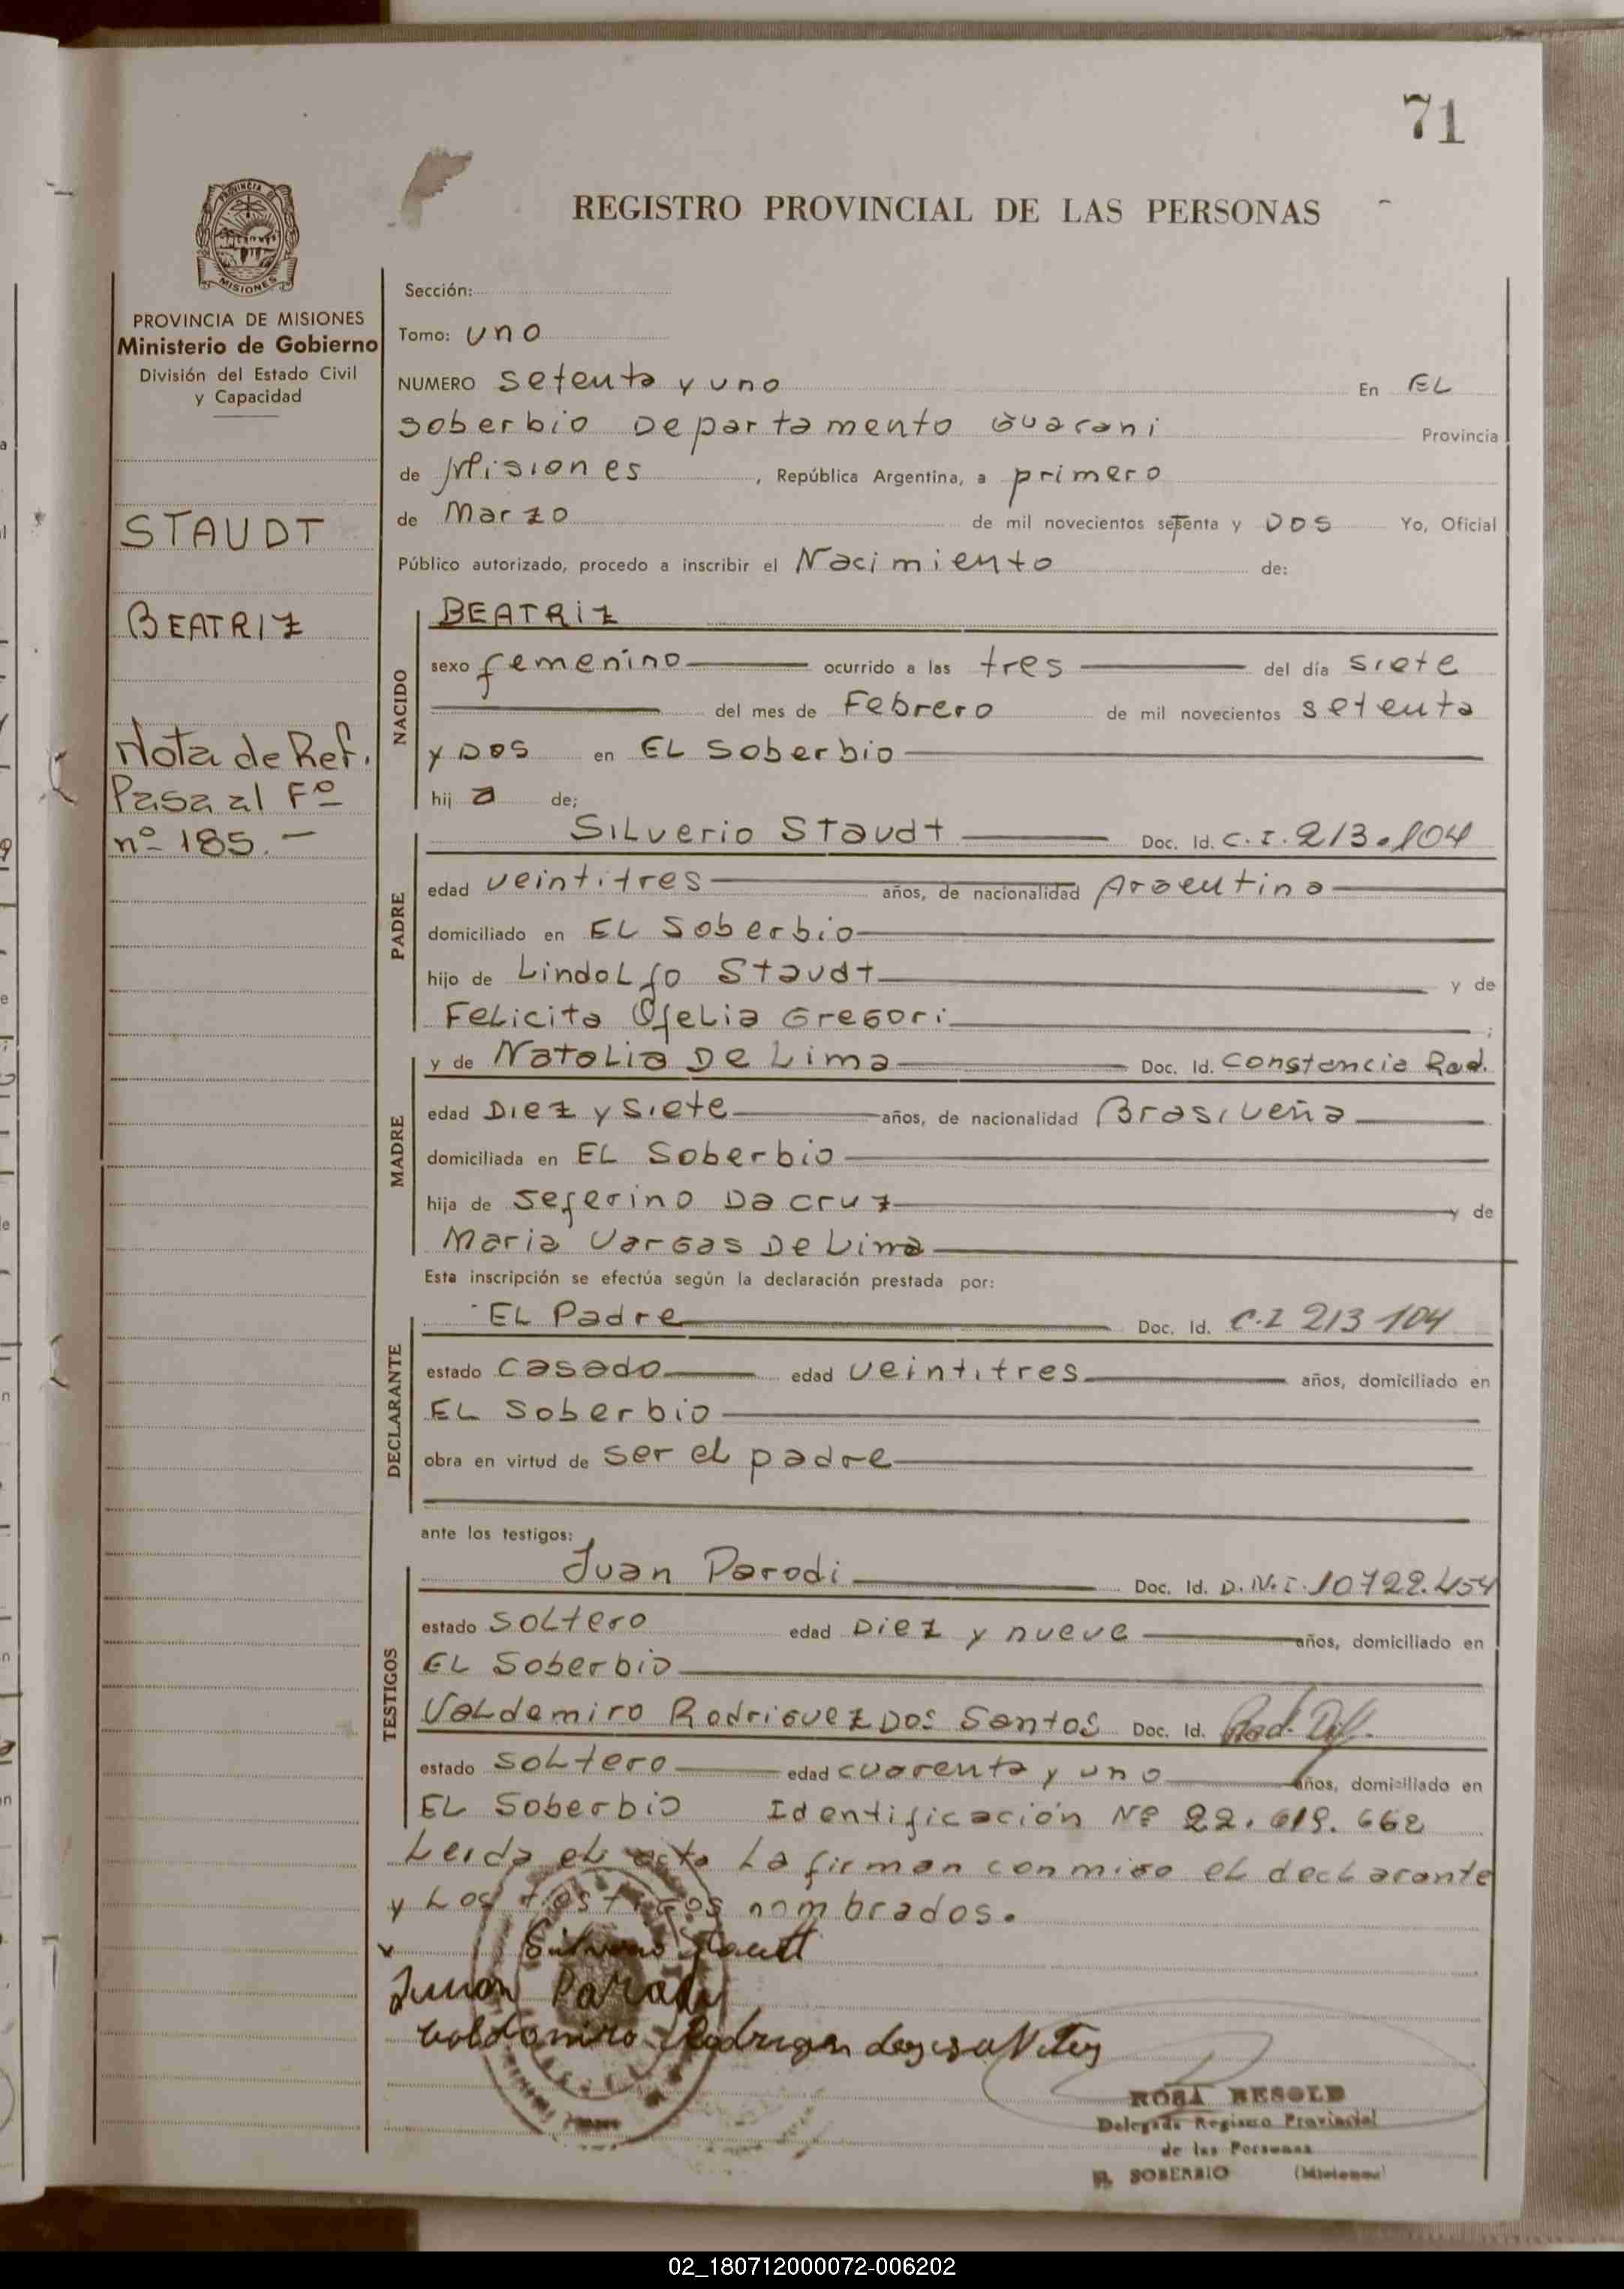 71
REGISTRO PROVINCIAL DE LAS PERSONAS
PROVINCIA DE MISIONES
PROVINCIA DE MISIONES
Ministerio de Gobierno
División del Estado Civil
y Capacidad
STAUDT
BEATRIZ
Nota de Ref.
Pasa al Fº
nº 185.-
Sección:
Tomo: uno
NUMERO setenta y uno En EL
soberbio Departamento Guarani Provincia
de Misiones, República Argentina, a primero
de Marzo de mil novecientos setenta y DOS Yo, Oficial
Público autorizado, procedo a inscribir el Nacimiento de:
NACIDO
BEATRIZ
sexo femenino ocurrido a las tres del día siete
del mes de Febrero de mil novecientos setenta
y DOS en EL Soberbio
hij a de;
PADRE
Silverio Staudt Doc. Id. C.I. 213.104
edad veintitres años, de nacionalidad Argentina
domiciliado en EL Soberbio
hijo de Lindolfo Staudt y de
Felicita Ofelia Gregori ;
MADRE
y de Natalia De Lima Doc. Id. Constancia Rad.
edad Diez y siete años, de nacionalidad Brasileña
domiciliada en EL Soberbio
hija de Seferino Da Cruz y de
Maria Vargas De Lima
Esta inscripción se efectúa según la declaración prestada por:
DECLARANTE
EL Padre Doc. Id. C.I 213 104
estado casado edad veintitres años, domiciliado en
EL Soberbio
obra en virtud de ser el padre
ante los testigos:
TESTIGOS
Juan Parodi Doc. Id. D.N.I. 10722.454
estado soltero edad Diez y nueve años, domiciliado en
EL Soberbio
Valdemiro Rodriguez Dos Santos Doc. Id. Rad.
estado soltero edad cuarenta y uno años, domiciliado en
EL Soberbio Identificación Nº 22.019.662
Leida el acta La firman conmigo el declarante
y Los testigos nombrados.
Silverio Staudt
Juan Parodi
ROSA BESOLD
Delegada Registro Provincial
de las Personas
EL SOBERBIO (Misiones)
02_180712000072-006202